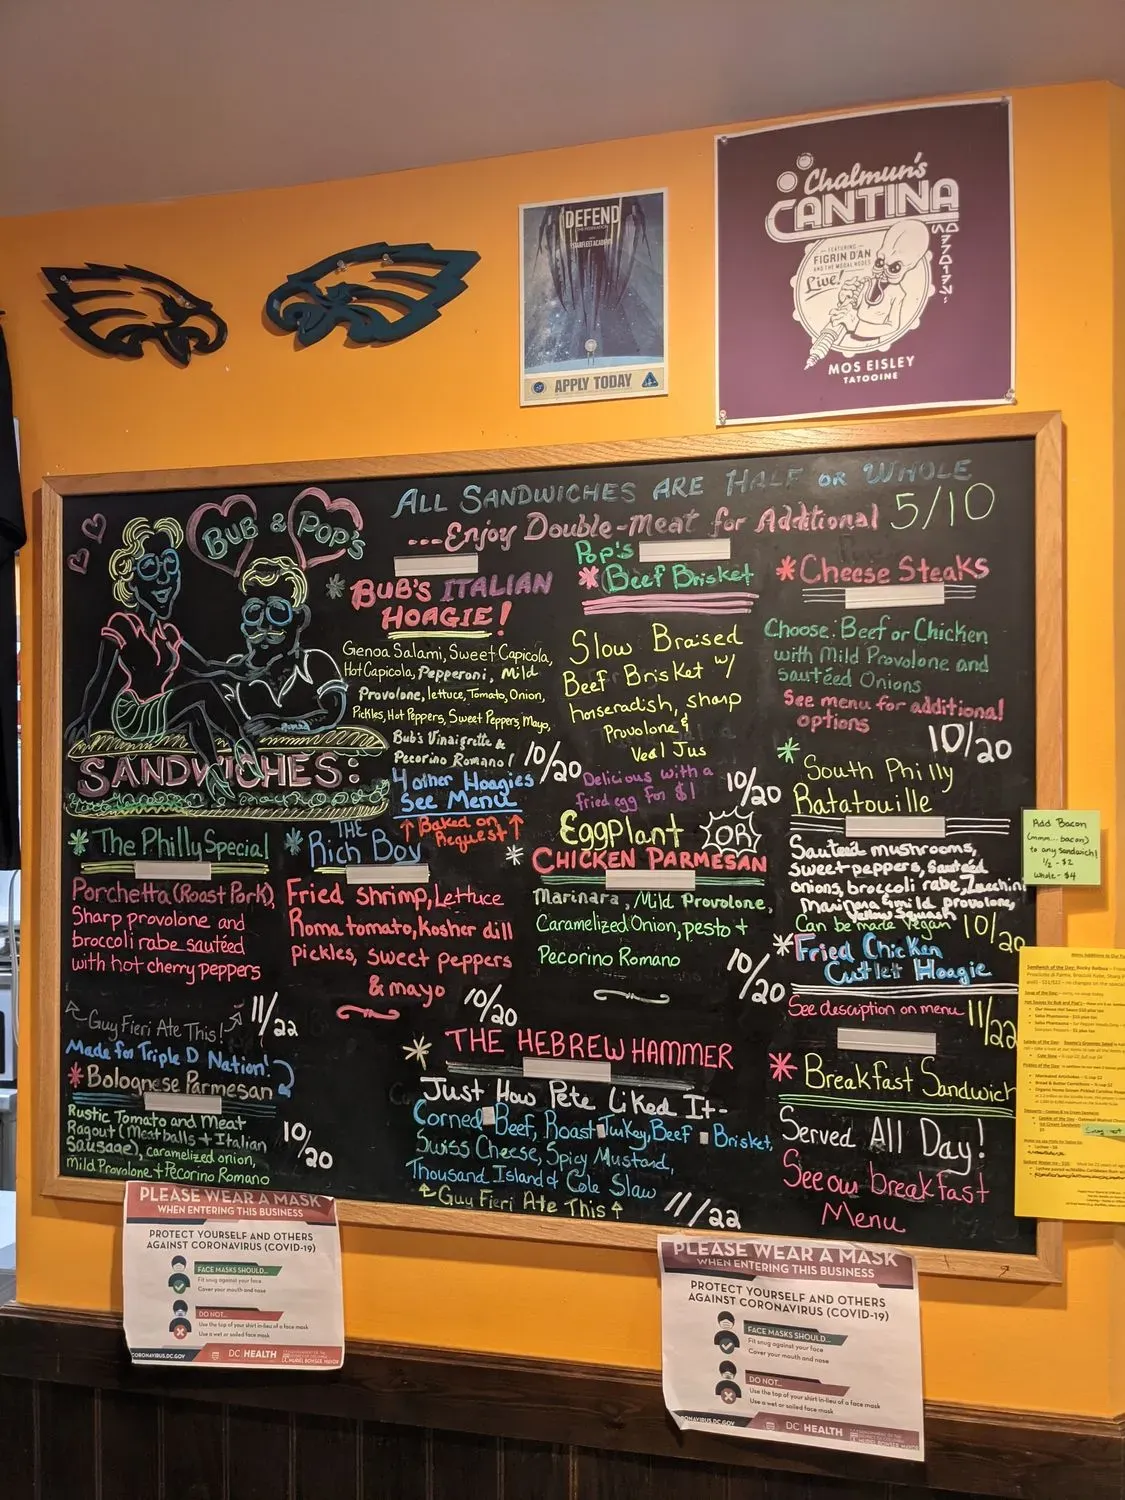 DEFEND
THE FEDERATION
STARFLEET ACADEMY
APPLY TODAY
Chalmun's
CANTINA
FEATURING
FIGRIN D'AN
AND THE MODAL NODES
Live!
MOS EISLEY
TATOOINE
ALL SANDWICHES ARE HALF OR WHOLE
...Enjoy Double-Meat for Additional 5/10
BUB & POP'S
SANDWICHES:
BUB'S ITALIAN
HOAGIE!
Genoa Salami, Sweet Capicola,
Hot Capicola, Pepperoni, Mild
Provolone, lettuce, Tomato, Onion,
Pickles, Hot Peppers, Sweet Peppers, Mayo,
Bub's Vinaigrette &
Pecorino Romano!
10/20
4 other Hoagies
See Menu
↑ Baked on ↑
Request
Pop's
*Beef Brisket
Slow Braised
Beef Brisket w/
horseradish, sharp
Provolone &
Veal Jus
Delicious with a
fried egg for $1
10/20
*Cheese Steaks
Choose: Beef or Chicken
with Mild Provolone and
Sautéed Onions
See menu for additional
options
10/20
*The Philly Special
Porchetta (Roast Pork),
Sharp provolone and
broccoli rabe sautéed
with hot cherry peppers
Guy Fieri Ate This!
11/22
*THE
Rich Boy
Fried shrimp, Lettuce
Roma tomato, Kosher dill
pickles, sweet peppers
& mayo
10/20
*Eggplant OR
CHICKEN PARMESAN
Marinara, Mild Provolone,
Caramelized Onion, pesto +
Pecorino Romano
10/20
*South Philly
Ratatouille
Sauteed mushrooms,
Sweet peppers, Sauteéd
onions, broccoli rabe, Zucchini
Marinara & mild provolone,
Yellow Squash
Can be made vegan
10/20
*Fried Chicken
Cutlet Hoagie
See description on menu
11/22
Made for Triple D Nation!
*Bolognese Parmesan
Rustic Tomato and Meat
Ragout (Meatballs + Italian
Sausage), caramelized onion,
Mild Provolone + Pecorino Romano
10/20
*THE HEBREW HAMMER
Just How Pete Liked It-
Corned Beef, Roast Turkey, Beef Brisket,
Swiss Cheese, Spicy Mustard,
Thousand Island & Cole Slaw
Guy Fieri Ate This
11/22
*Breakfast Sandwich
Served All Day!
See our breakfast
Menu
Add Bacon
(mmm... bacon)
to any Sandwich!
1/2 - $2
Whole - $4
PLEASE WEAR A MASK
WHEN ENTERING THIS BUSINESS
PROTECT YOURSELF AND OTHERS
AGAINST CORONAVIRUS (COVID-19)
FACE MASKS SHOULD...
Fit snug against your face
Cover your mouth and nose
DO NOT...
Use the top of your shirt in-lieu of a face mask
Use a wet or soiled face mask
CORONAVIRUS.DC.GOV
DC HEALTH
PLEASE WEAR A MASK
WHEN ENTERING THIS BUSINESS
PROTECT YOURSELF AND OTHERS
AGAINST CORONAVIRUS (COVID-19)
FACE MASKS SHOULD...
Fit snug against your face
Cover your mouth and nose
DO NOT...
Use the top of your shirt in-lieu of a face mask
Use a wet or soiled face mask
CORONAVIRUS.DC.GOV
DC HEALTH